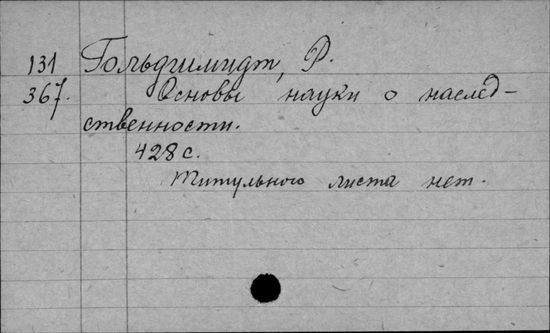 131 Гольдшмидт, Р.
367. Основы науки о наслед-
ственности.
428 с.
Титульного листа нет.